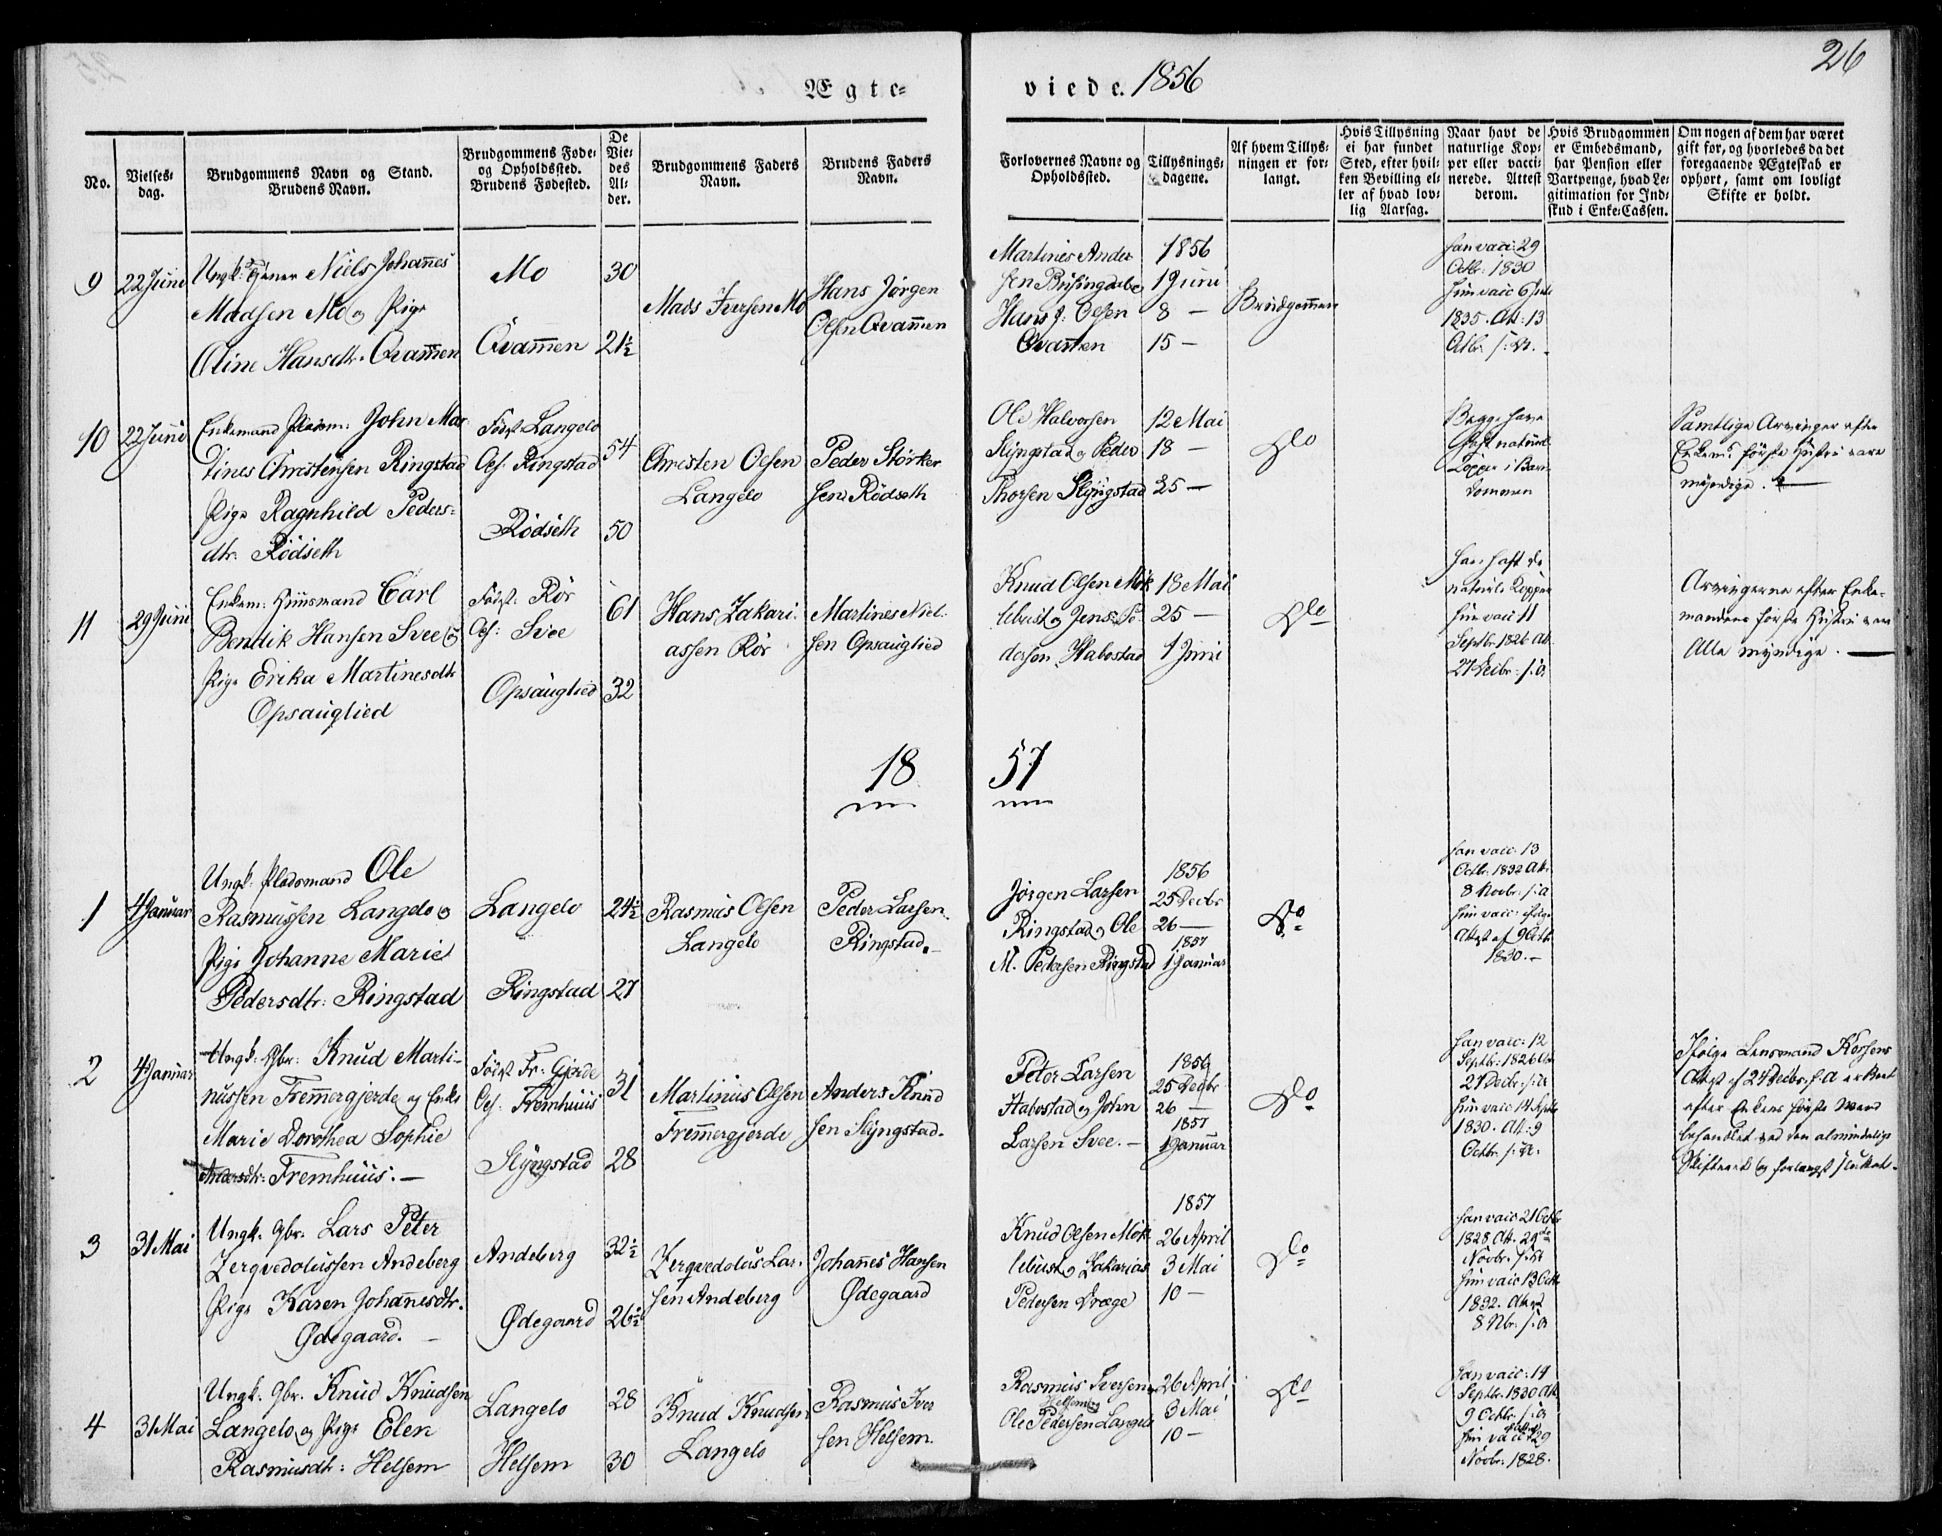 26
Ægte-
viede. 1856
No.
Vielses-
dag.
Brudgommens Navn og Stand.
Brudens Navn.
Brudgommens Føde-
og Opholdssted.
Brudens Fødested.
De
Vie-
des
Al-
der.
Brudgommens Faders
Navn.
Brudens Faders
Navn.
Forlovernes Navne og
Opholdssted.
Tillysnings-
dagene.
Af hvem Tillys-
ningen er for-
langt.
Hvis Tillysning
ei har fundet
Sted, efter hvil-
ken Bevilling el-
ler af hvad lov-
lig Aarsag.
Naar havt de
naturlige Kop-
per eller vacci-
nerede. Attest
derom.
Hvis Brudgommen
er Embedsmand,
har Pension eller
Vartpenge, hvad Le-
gitimation for Ind-
skud i Enke-Cassen.
Om nogen af dem har været
gift før, og hvorledes da det
foregaaende Ægteskab er
ophørt, samt om lovligt
Skifte er holdt.
9
22 Juni
Ungk: Niels Johannes
Madsen Mo og Pige
Oline Hansdtr. Qvammen
Mo
Qvammen
30
21½
Mads Iversen Mo
Hans Jörgen
Olsen Qvammen
Martines Ander
sen
Hans J: Olsen
Qvammen
1856
1 Juni
8 —
15 —
Brudgommen
han vacc: 29
Octbr. 1830
hun vacc 6 Juli
1835. Att: 13
Octbr. s: A.
10
22 Juni
Enkemand John Mar
tines Christensen Ringstad
Pige Ragnhild Peders-
dtr: Rödseth
Födt: Langelo
Oph: Ringstad
Rödseth
54
50
Christen Olsen
Langelo
Peder Störker
sen Rödseth
Ole Halvorsen
Slyngstad og Peder
Thorsen Slyngstad
12 Mai
18 —
25 —
Do
Begge have
havt naturl.
Kopper i Barn
dommen
Samtlige Arvinger efter
Enkem: förste Hustru ere
myndige. —
11
29 Juni
Enkem: Huusmand Carl
Bendik Hansen Svee og
Pige Erika Martinesdtr
Opsauglied
Födt: Rör
Oph: Svee
Opsauglied
61
32
Hans Zakari-
assen Rör
Martines Niel-
sen Opsauglied
Knud Olsen Mök
lebust og Jens Pe-
dersen Habostad
18 Mai
25 —
1 Juni
Do
han havt de
naturl. Kopper
hun vacc 11
Septbr. 1826 Att.
27 Decbr: s: A
Arvingerne efter Enke-
mandens förste Hustru ere
Alle myndige. —
18 57
1
4 Januar
Ungk. Pladsmand Ole
Rasmussen Langelo og
Pige Johanne Marie
Pedersdtr: Ringstad
Langelo
Ringstad
24½
27
Rasmus Olsen
Langelo
Peder Larsen
Ringstad.
Jörgen Larsen
Ringstad og Ole
M. Pedersen Ringstad
1856
25 Decbr
26 —
1857
1 Januar
Do
han vacc: 13
Octbr. 1832 Att:
8 Novbr. s: A
hun vacc: ifölge
Attest af 9 Octbr
1830. —
2
4 Januar
Ungk: Gbr. Knud Marti-
nussen Fremmergjerde og Enke
Marie Dorothea Sophie
Andersdtr: Fremhuus. —
Födt Fr: Gjerde
Oph. Fremhuus
Slyngstad
31
28
Martinus Olsen
Fremmergjerde
Anders Knud
sen Slyngstad.
Peter Larsen
Habostad og John
Larsen Svee. —
1856
25 Decbr
26 —
1857
1 Januar
Do
han vacc: 12
Septbr: 1826 Att
27 Decbr. s: A
hun vacc 14
1830. Att: 9
Octbr. s: A.
Ifölge Lensmand
Attest af 24 Decbr. s: A er Boet
efter Enkens förste Mand
behandlet ved den almindelige
Skifteret og forlængst sluttet.
3
31 Mai
Ungk. Gbr. Lars Peter
Zerqvedolussen Andeberg
Pige Karen Johannesdtr.
Ödegaard. —
Andeberg
Ödegaard
32½
26½
Zerqvedolus Lar-
sen Andeberg
Johannes Hansen
Ödegaard
Knud Olsen Mök
lebust og Zakarias
Pedersen Dræge
1857
26 April
3 Mai
10 —
Do
han vacc 21 Octbr
1828. Att. 29de
Novbr. s: A
hun vacc 13 Octbr
1832. Attest
8 Nbr: s: A
4
31 Mai
Ungk. Gbr. Knud Knudsen
Langelo og Pige Elen
Rasmusdtr: Helsem
Langelo
Helsem
28
30
Knud Knudsen
Langelo
Rasmus Iver
sen Helsem.
Rasmus Iversen
Helsem og
Ole Pedersen Langelo
26 April
3 Mai
10 —
Do
han vacc: 14
Septbr. 1830 Att
9 Octbr. s: A
hun vacc 29
Novbr. 1828.